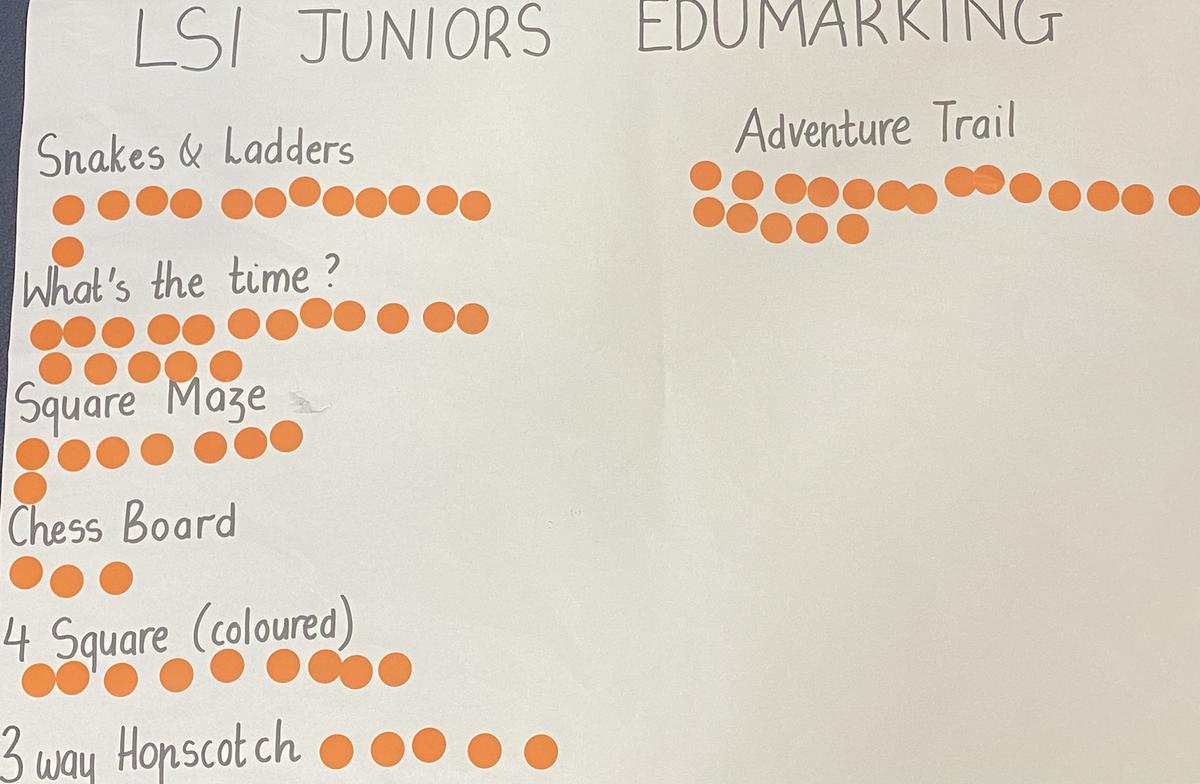 LSI JUNIORS EDUMARKING
Snakes & Ladders
What's the time?
Square Maze
Chess Board
4 Square (coloured)
3 way Hopscotch
Adventure Trail